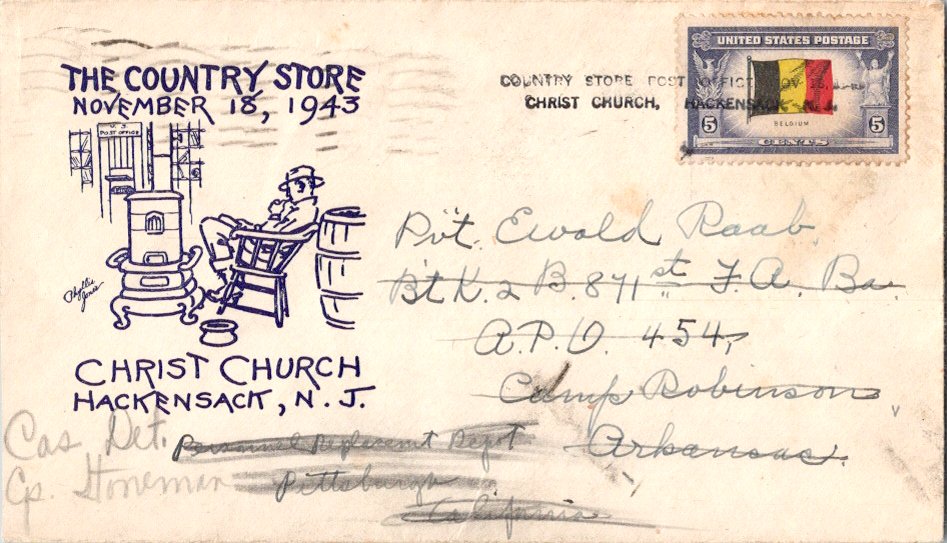 THE COUNTRY STORE
NOVEMBER 18, 1943
U. S.
POST OFFICE
Phyllis
Jones
CHRIST CHURCH
HACKENSACK, N. J.
COUNTRY STORE POST OFFICE NOV 18,
CHRIST CHURCH, HACKENSACK N. J.
UNITED STATES POSTAGE
BELGIUM
5 5
CENTS
Pvt. Ewald Raab
Bt K. 2 B. 871st F. A. Ba.
A.P.O. 454,
Camp Robinson
Arkansas.
Personnel Replacement Depot
Pittsburgh
California
Cas. Det.
Cp. Stoneman